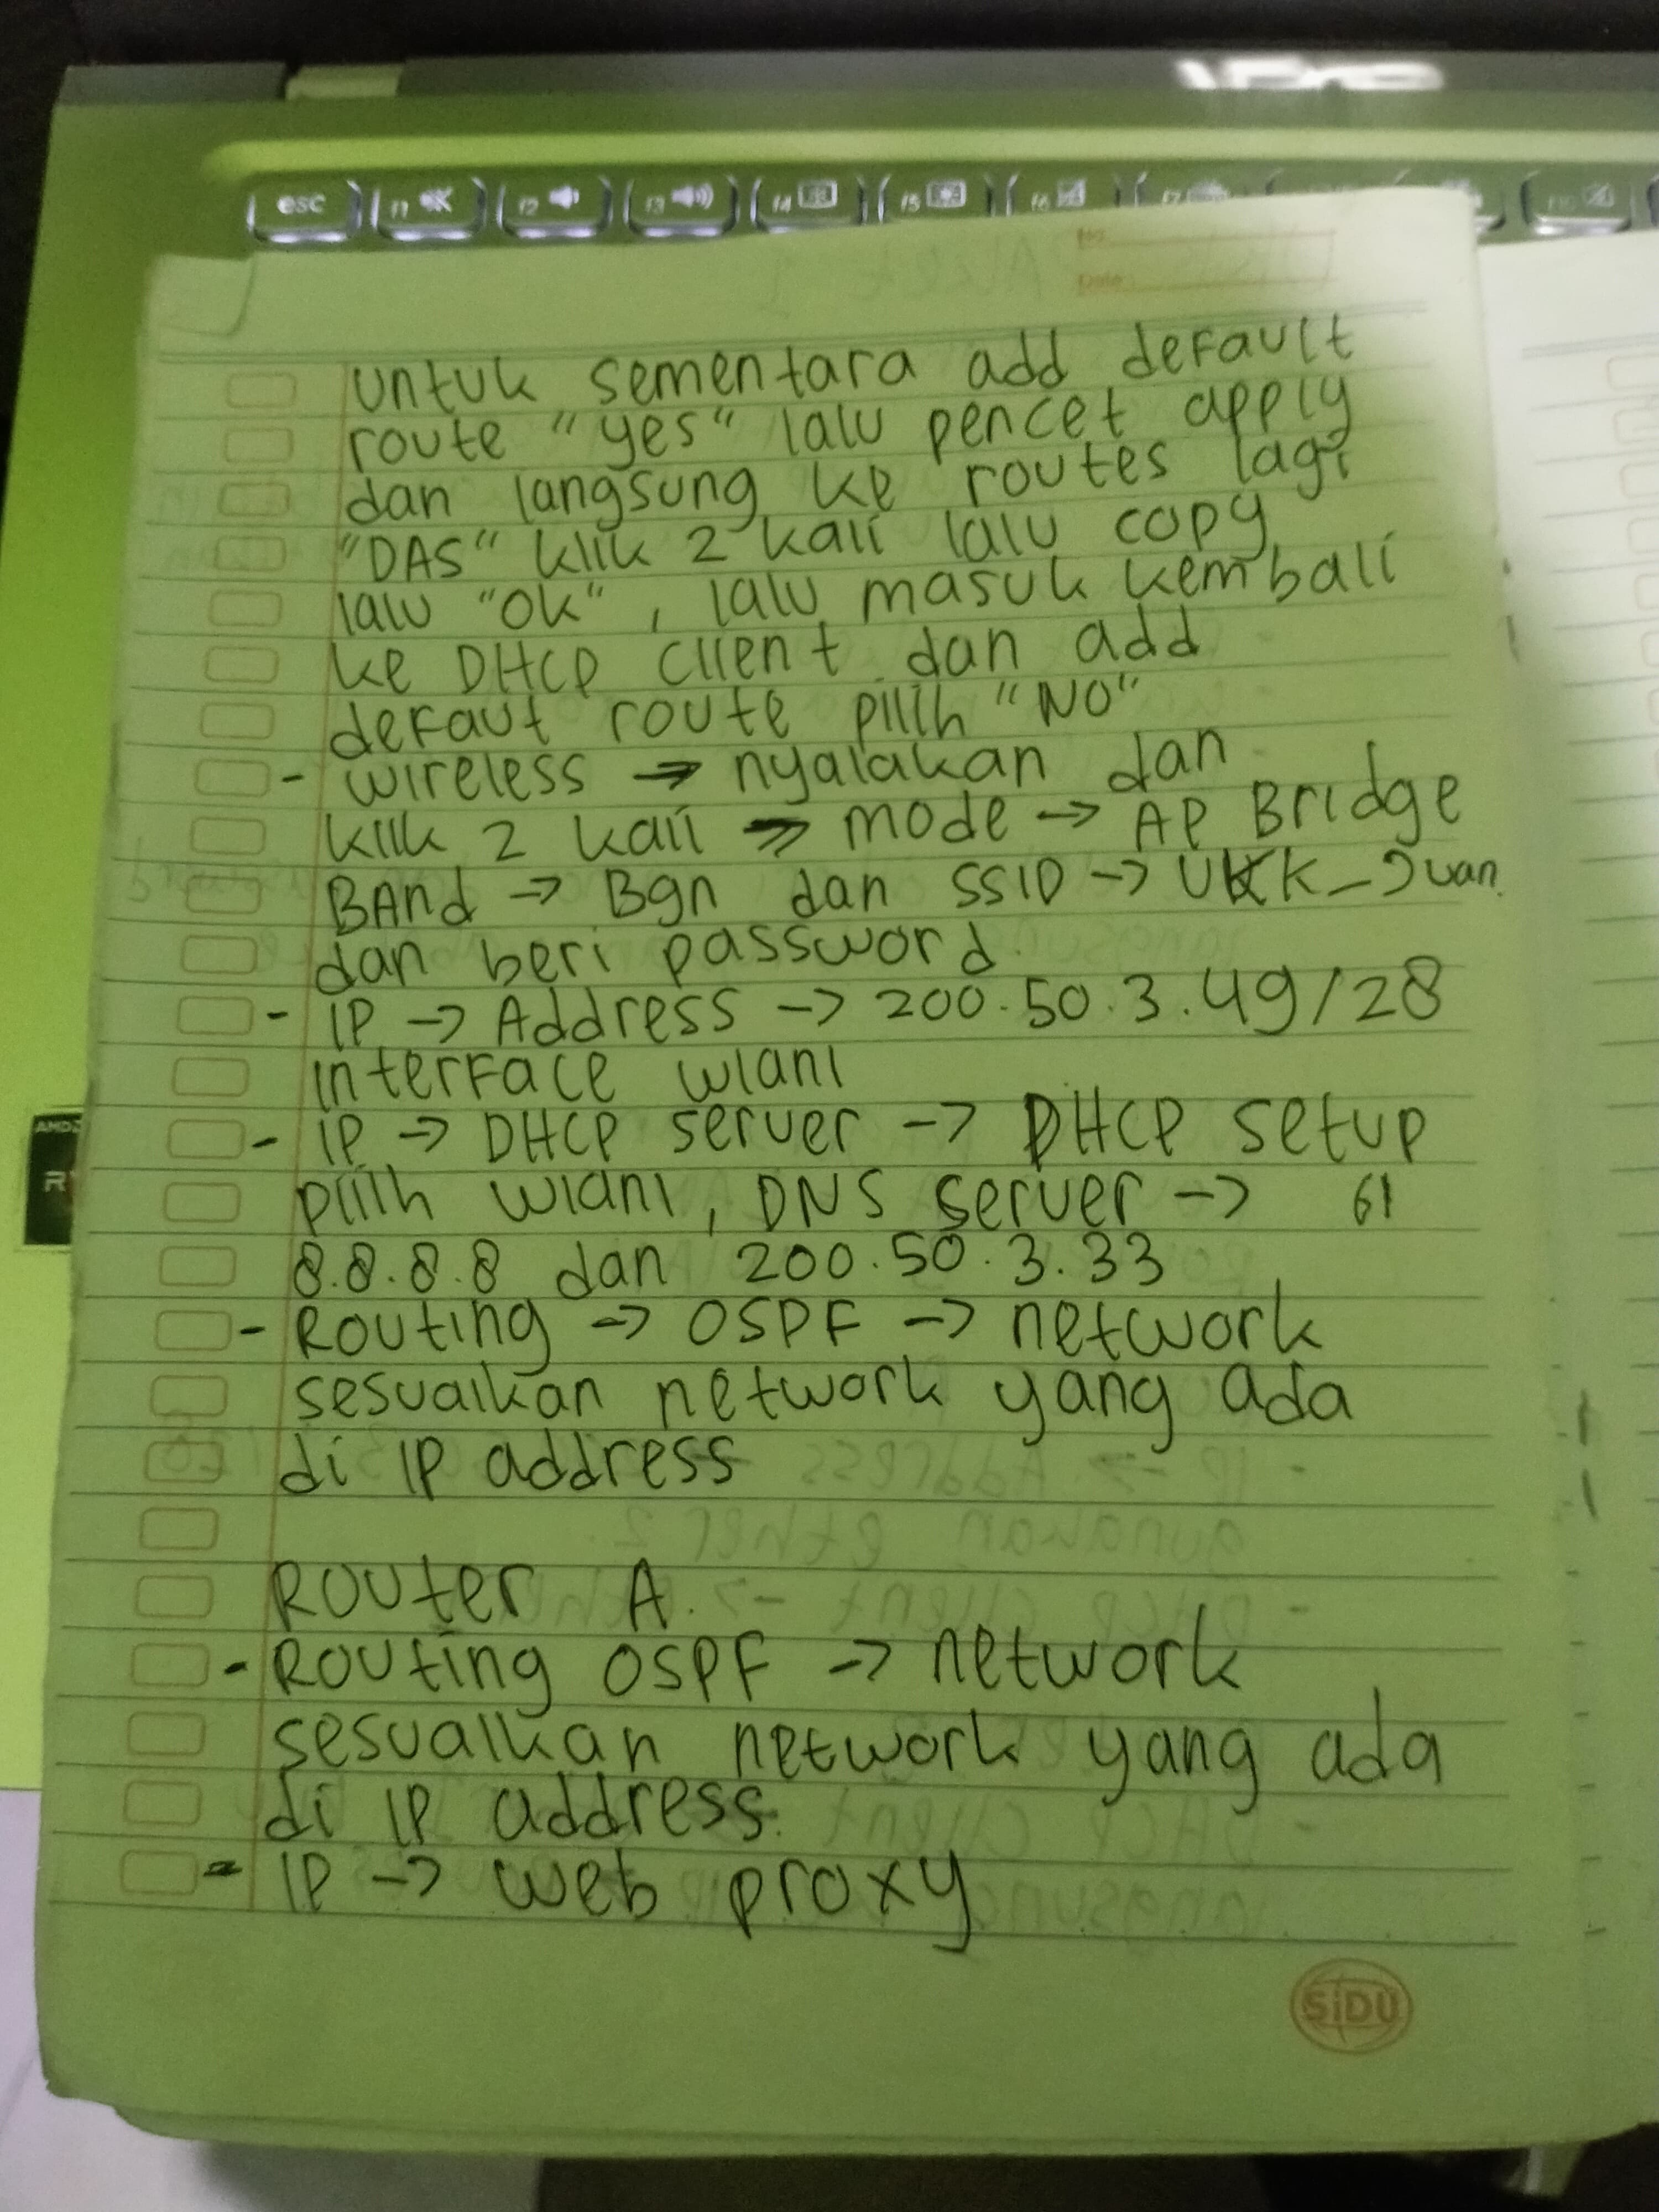 esc f1 f2 f3 f4 f5 f6 f7
No.
Date.
untuk sementara add default
route "yes" lalu pencet apply
dan langsung ke routes lagi
"DAS" klik 2 kali lalu copy
lalu "OK", lalu masuk kembali
ke DHCP Client dan add
defaut route pilih "NO"
- wireless → nyalakan dan
klik 2 kali → mode → AP Bridge
BAnd → Bgn dan SSID → UKK_Juan
dan beri password
- IP → Address → 200.50.3.49/28
interface wlan1
- IP → DHCP server → DHCP setup
pilih wlan1, DNS server → 61
8.8.8.8 dan 200.50.3.33
- Routing → OSPF → network
sesuaikan network yang ada
di IP address
Router A
- Routing OSPF → network
sesuaikan network yang ada
di IP address
- IP → web proxy
SiDU
AMD